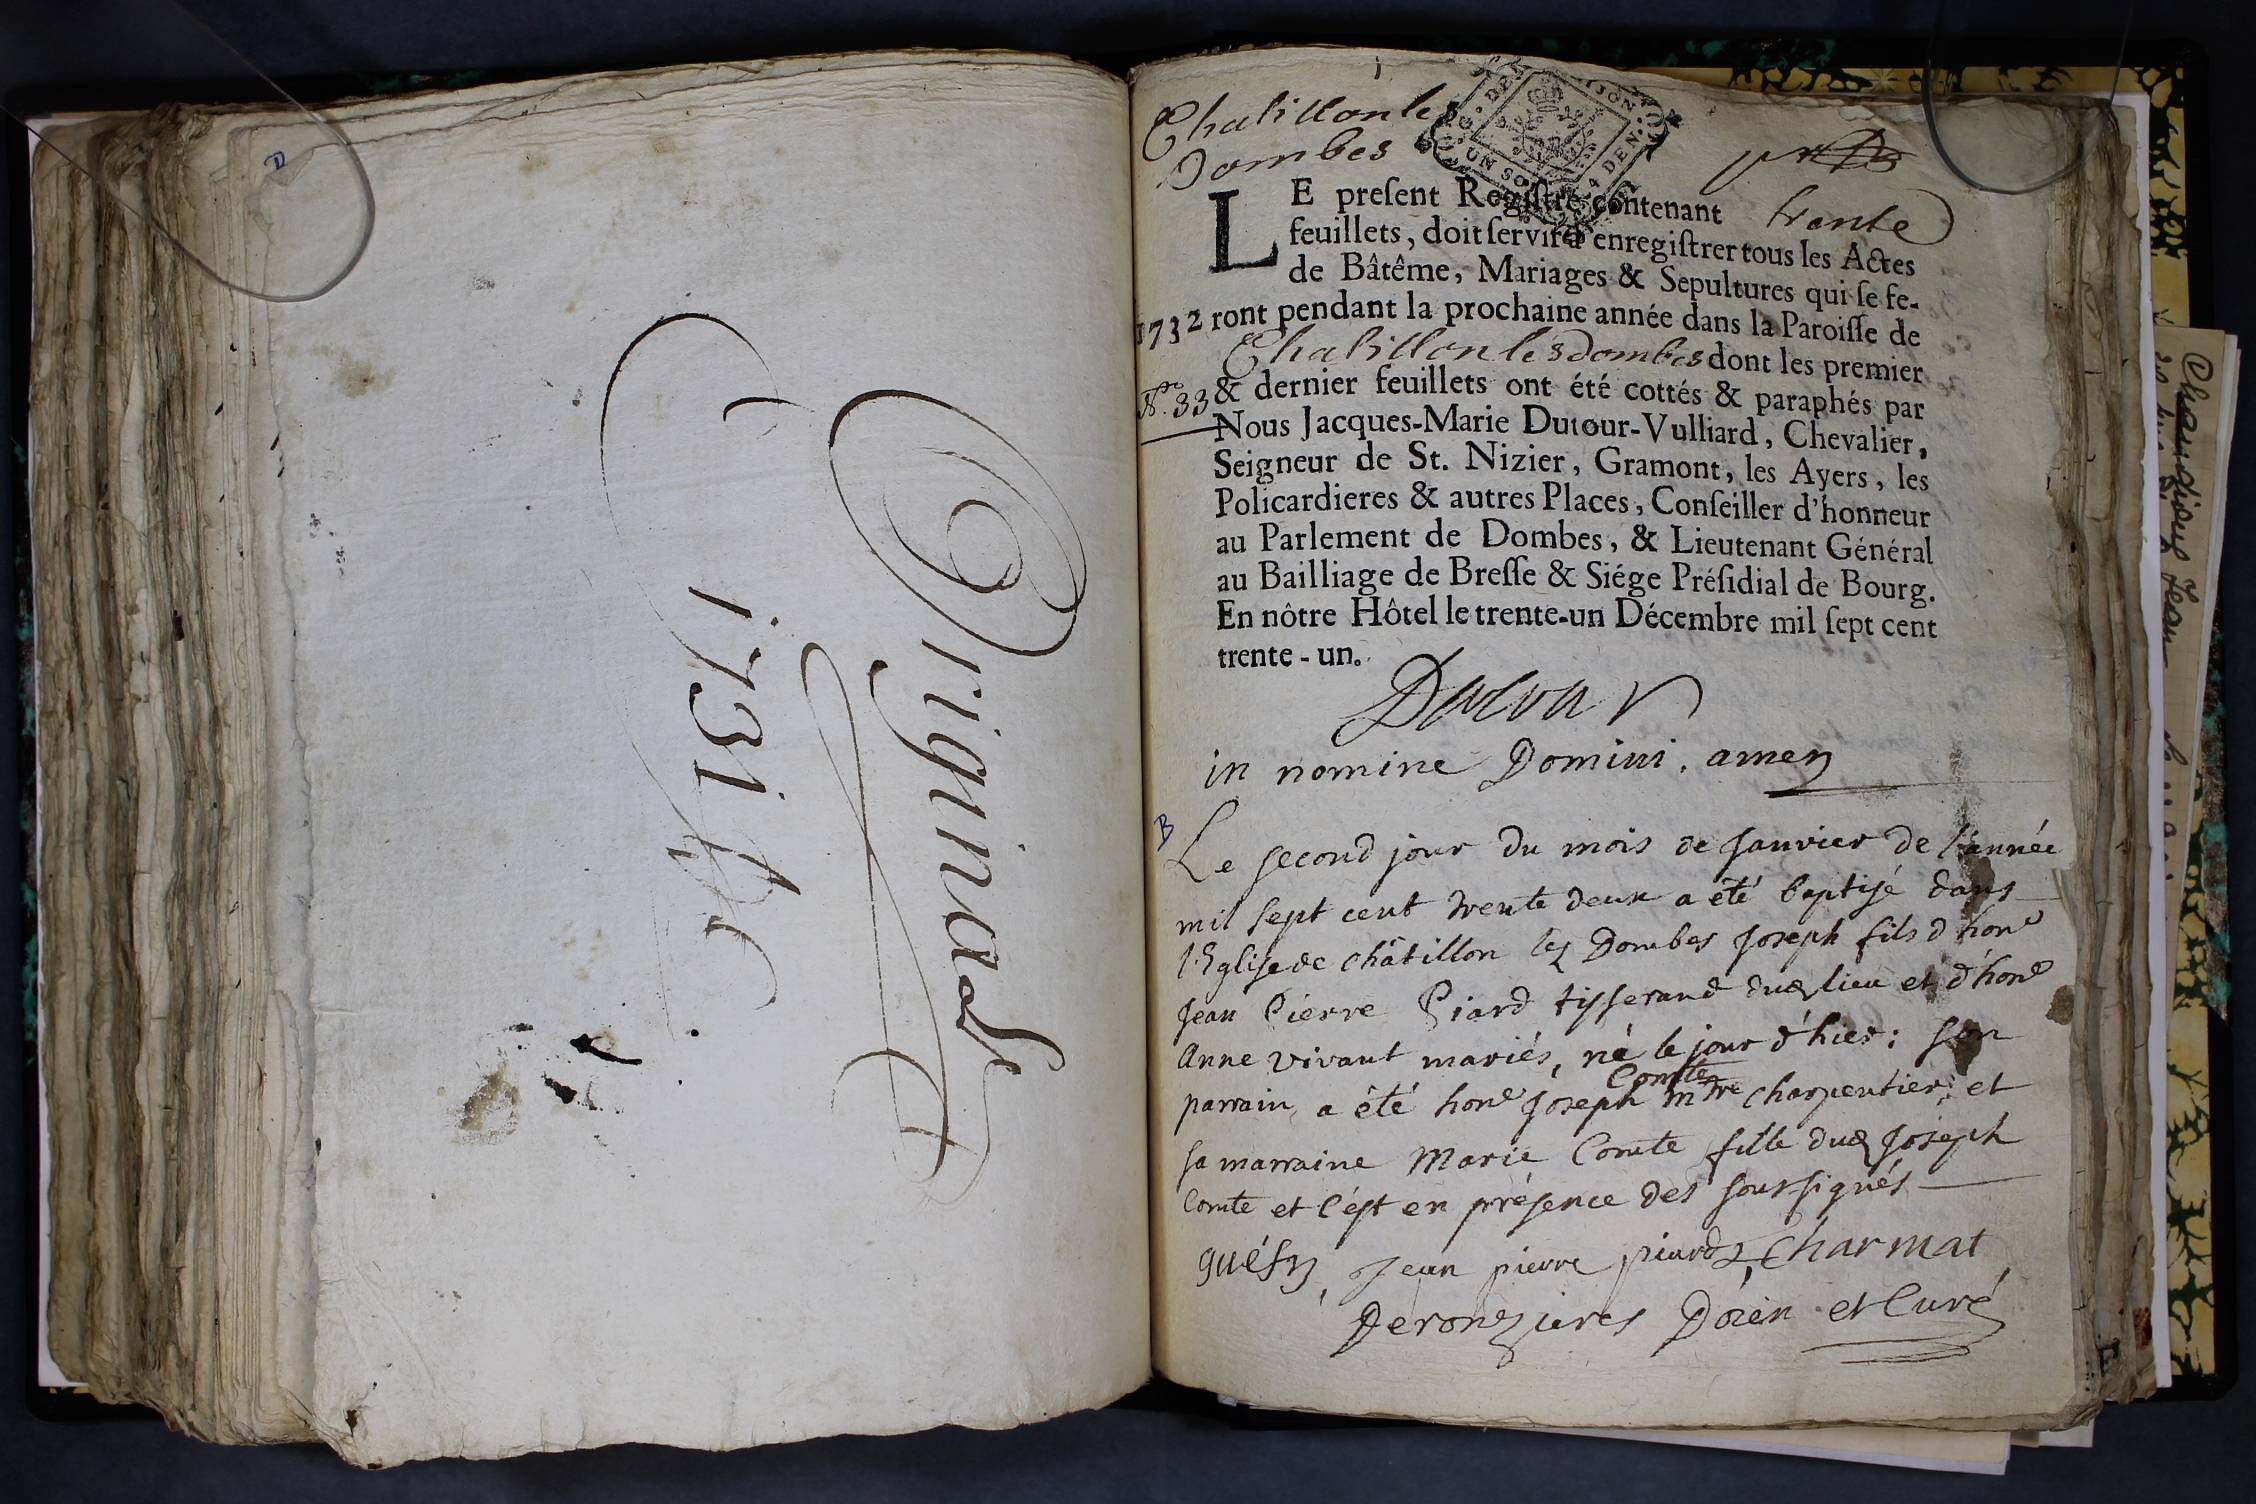 Originade
1731
Chatillon les
Dombes
DE DIJON
UN SOL 4 DEN.
LE preſent Regiſtre contenant trente
feuillets, doit ſervir à enregiſtrer tous les Actes
de Bâtême, Mariages & Sepultures qui ſe fe-
1732 ront pendant la prochaine année dans la Paroiſſe de
Chatillon les dombes dont les premier
No. 33 & dernier feuillets ont été cottés & paraphés par
Nous Jacques-Marie Dutour-Vulliard, Chevalier,
Seigneur de St. Nizier, Gramont, les Ayers, les
Policardieres & autres Places, Conſeiller d'honneur
au Parlement de Dombes, & Lieutenant Général
au Bailliage de Breſſe & Siége Préſidial de Bourg.
En nôtre Hôtel le trente-un Décembre mil ſept cent
trente-un.
Dutour
in nomine Domini. amen
B
Le second jour du mois de Janvier de l'année
mil sept cent trente deux a été baptisé dans
l'Eglise de châtillon lez Dombes Joseph fils d'hone
Jean Pierre Piard tisserand dud lieu et d'hone
Anne vivant mariés, né le jour d'hier: son
parrain a été hone Joseph Comte mtre charpentier; et
sa marraine Marie Comte fille dud Joseph
Comte et c'est en présence des soussignés
guésn Jean pierre piard Charmat
Deronzieres Doïen et Curé